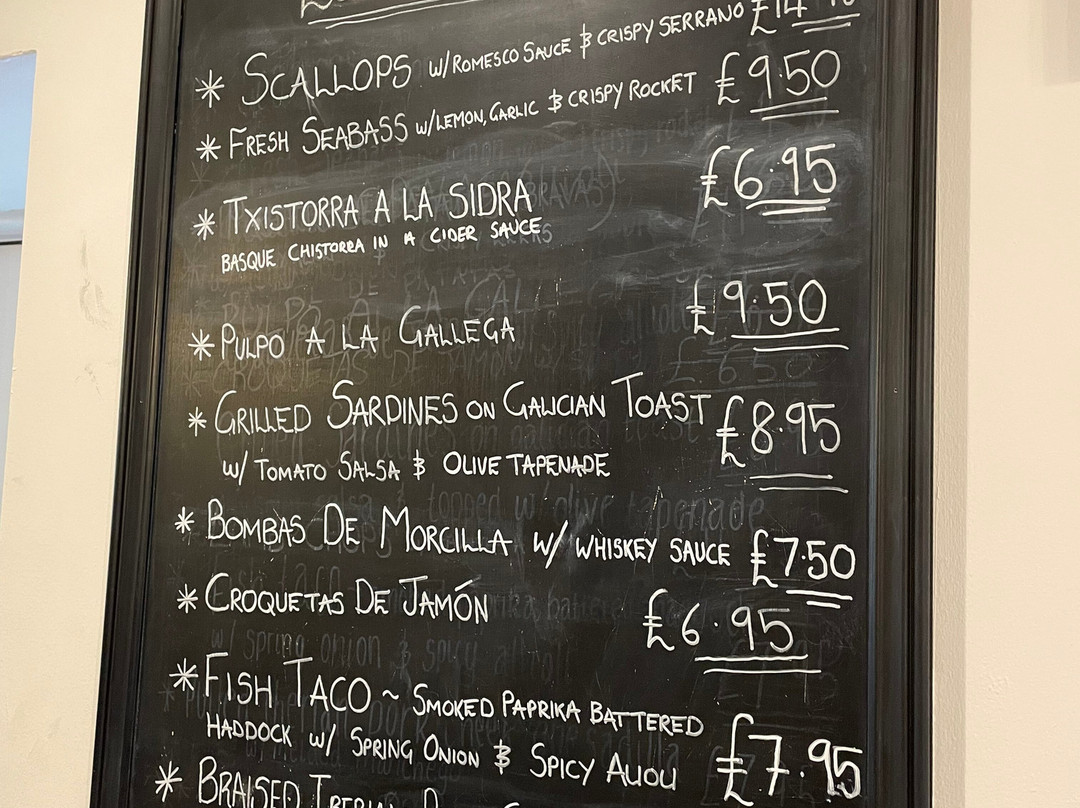 * SCALLOPS w/ROMESCO SAUCE & CRISPY SERRANO
* FRESH SEABASS w/LEMON, GARLIC & CRISPY ROCKET £9.50
* TXISTORRA A LA SIDRA £6.95
BASQUE CHISTORRA IN A CIDER SAUCE
* PULPO A LA GALLEGA £9.50
* GRILLED SARDINES ON GALICIAN TOAST £8.95
w/ TOMATO SALSA & OLIVE TAPENADE
* BOMBAS DE MORCILLA w/ WHISKEY SAUCE £7.50
* CROQUETAS DE JAMÓN £6.95
* FISH TACO ~ SMOKED PAPRIKA BATTERED
HADDOCK w/ SPRING ONION & SPICY ALIOLI £7.95
* BRAISED